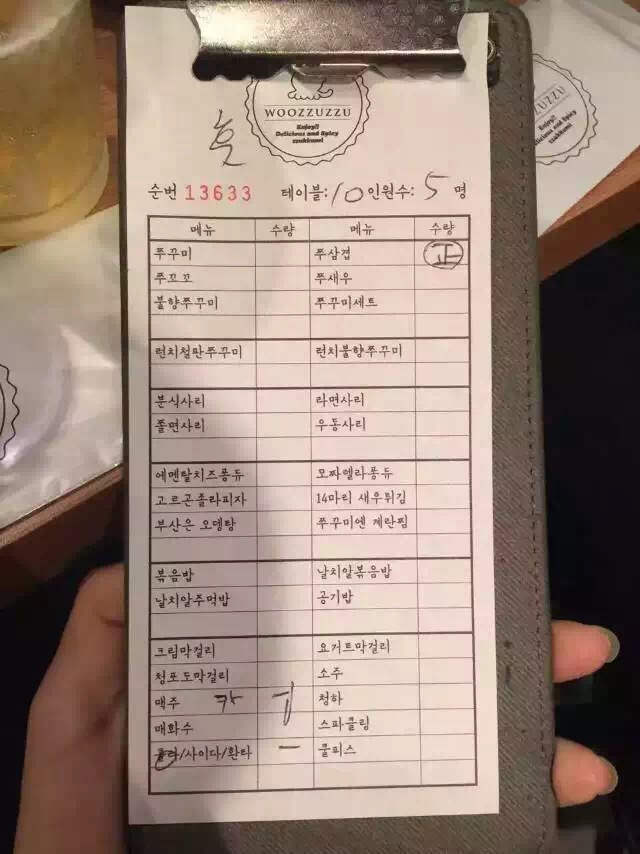 WOOZZUZZU
Enjoy!!
Delicious and Spicy
zzukkumi
순번 13633 테이블: 10 인원수: 5 명
메뉴 수량 메뉴 수량
쭈꾸미 쭈삼겹 正
쭈꼬꼬 쭈새우
불향쭈꾸미 쭈꾸미세트
런치철판쭈꾸미 런치불향쭈꾸미
분식사리 라면사리
쫄면사리 우동사리
에멘탈치즈퐁듀 모짜렐라퐁듀
고르곤졸라피자 14마리 새우튀김
부산은 오뎅탕 쭈꾸미엔 계란찜
볶음밥 날치알볶음밥
날치알주먹밥 공기밥
크림막걸리 요거트막걸리
청포도막걸리 소주
맥주 카 청하
매화수 스파클링
콜라/사이다/환타 一 쿨피스
ZZUZZU
Enjoy!!